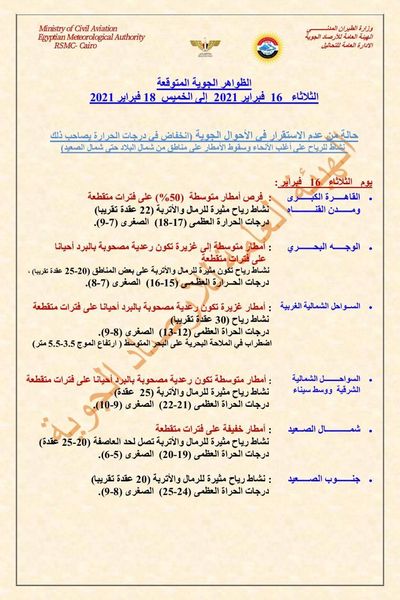 Ministry of Civil Aviation
Egyptian Meteorological Authority
RSMC- Cairo
وزارة الطيران المدنـــي
الهيئة العامة للأرصاد الجوية
الادارة العامة للتحاليل
الظواهر الجوية المتوقعة
الثلاثاء 16 فبراير 2021 إلى الخميس 18 فبراير 2021
حالة من عدم الاستقرار في الأحوال الجوية (انخفاض في درجات الحرارة يصاحب ذلك
نشاط للرياح على أغلب الأنحاء وسقوط الأمطار على مناطق من شمال البلاد حتى شمال الصعيد)
يوم الثلاثاء 16 فبراير :
• القاهرة الكبرى ومـــدن القنـــاة
: فرص أمطار متوسطة (50%) على فترات متقطعة
نشاط رياح مثيرة للرمال والأتربة (22 عقدة تقريبا)
درجات الحرارة العظمى (17-18) الصغرى (7-9).
• الوجـه البحـــري
: أمطار متوسطة إلى غزيرة تكون رعدية مصحوبة بالبرد أحيانا
على فترات متقطعة
نشاط رياح مثيرة للرمال والأتربة على بعض المناطق (20-25 عقدة تقريبا) ،
درجات الحـرارة العظمـى (15-16) الصغرى (7-8).
• السواحل الشمالية الغربية
: أمطار غزيرة تكون رعدية مصحوبة بالبرد أحيانا على فترات متقطعة
نشاط رياح (30 عقدة تقريبا)
درجات الحراة العظمى (12-13) الصغرى (8-9).
اضطراب في الملاحة البحرية على البحر المتوسط ( ارتفاع الموج 3.5-5.5 متر)
• السواحـــل الشمالية الشرقية ووسط سيناء
: أمطار متوسطة تكون رعدية مصحوبة بالبرد أحيانا على فترات متقطعة
نشاط رياح مثيرة للرمال والأتربة (25 عقدة)
درجات الحراة العظمى (21-22) الصغرى (9-10).
• شمـــــال الصـعيد
: أمطار خفيفة على فترات متقطعة
نشاط رياح مثيرة للرمال والأتربة تصل لحد العاصفة (20-25 عقدة)
درجات الحراة العظمى (19-20) الصغرى (5-6).
• جنـــوب الصـعيد
: نشاط رياح مثيرة للرمال والأتربة (20 عقدة تقريبا)
درجات الحراة العظمى (24-25) الصغرى (8-9).
الهيئة العامة للأرصاد الجوية